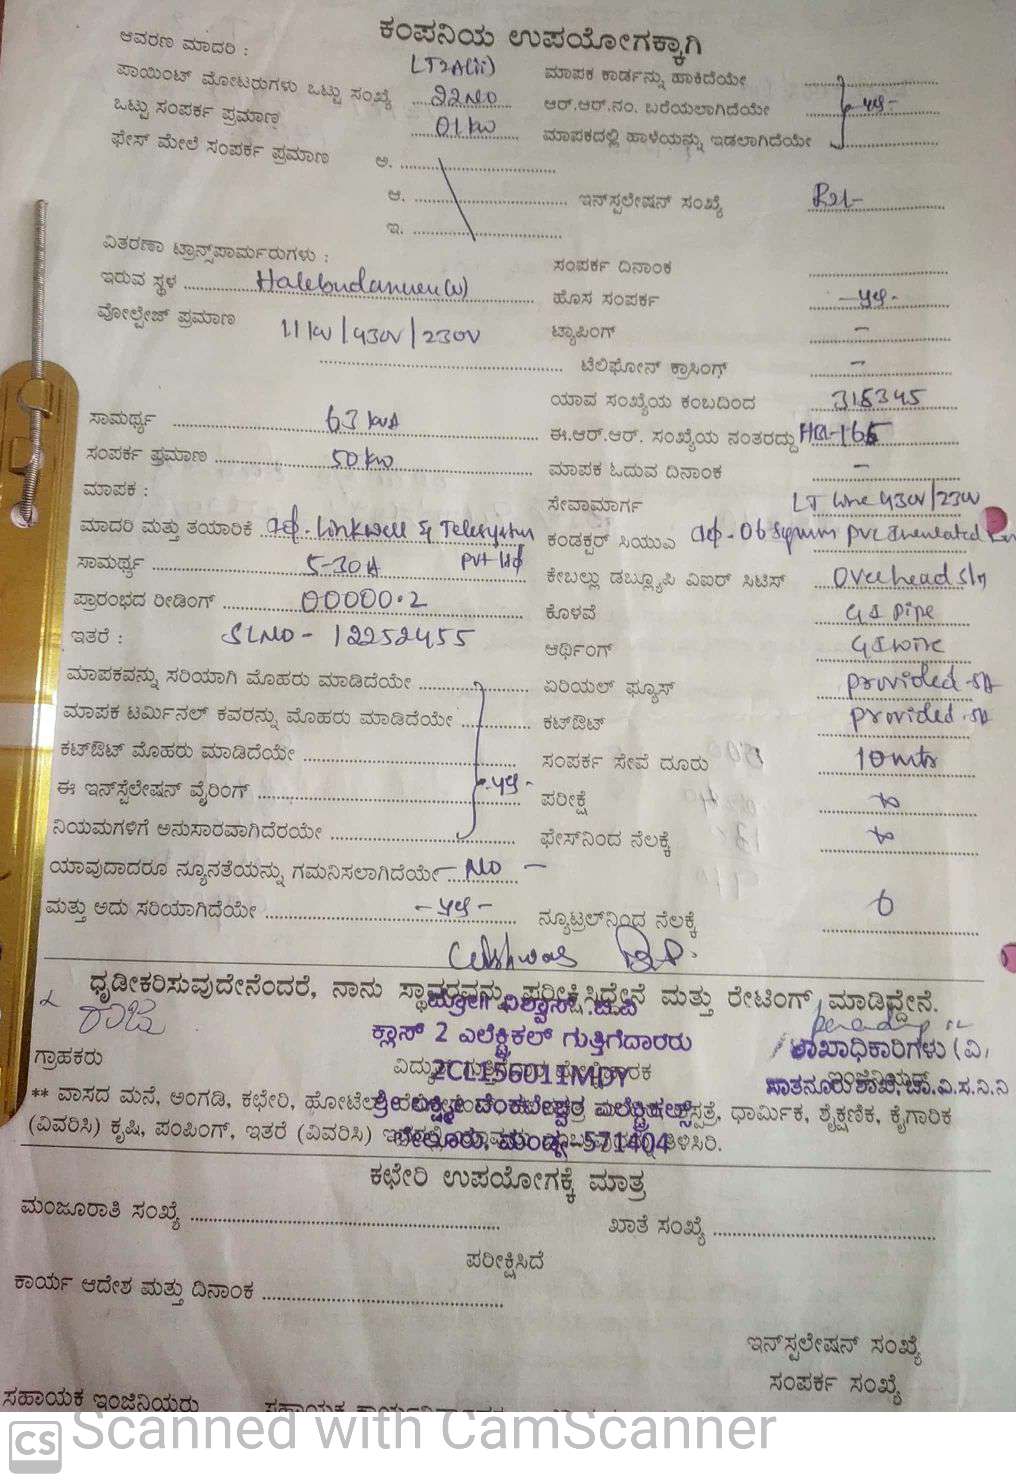 ಕಂಪನಿಯ ಉಪಯೋಗಕ್ಕಾಗಿ
ಆವರಣ ಮಾದರಿ : LT2A(ii)
ಮಾಪಕ ಕಾರ್ಡನ್ನು ಹಾಕಿದೆಯೇ
ಪಾಯಿಂಟ್ ಮೋಟರುಗಳು ಒಟ್ಟು ಸಂಖ್ಯೆ 22NO
ಆರ್.ಆರ್.ನಂ. ಬರೆಯಲಾಗಿದೆಯೇ
ಒಟ್ಟು ಸಂಪರ್ಕ ಪ್ರಮಾಣ 01 KW
ಮಾಪಕದಲ್ಲಿ ಹಾಳೆಯನ್ನು ಇಡಲಾಗಿದೆಯೇ
ಫೇಸ್ ಮೇಲೆ ಸಂಪರ್ಕ ಪ್ರಮಾಣ ಅ.
ಆ.
ಇನ್‌ಸ್ಪಲೇಷನ್ ಸಂಖ್ಯೆ
ಇ.
ವಿತರಣಾ ಟ್ರಾನ್ಸ್‌ಪಾರ್ಮರುಗಳು :
ಸಂಪರ್ಕ ದಿನಾಂಕ
ಇರುವ ಸ್ಥಳ
ಹೊಸ ಸಂಪರ್ಕ
ವೋಲ್ಟೇಜ್ ಪ್ರಮಾಣ 11 KV/430V/230V
ಟ್ಯಾಪಿಂಗ್ -
ಟೆಲಿಫೋನ್ ಕ್ರಾಸಿಂಗ್ -
ಯಾವ ಸಂಖ್ಯೆಯ ಕಂಬದಿಂದ
ಸಾಮರ್ಥ್ಯ 63 KVA
ಈ.ಆರ್.ಆರ್. ಸಂಖ್ಯೆಯ ನಂತರದ್ದು
ಸಂಪರ್ಕ ಪ್ರಮಾಣ 50 KW
ಮಾಪಕ ಓದುವ ದಿನಾಂಕ -
ಮಾಪಕ :
ಸೇವಾಮಾರ್ಗ LT Line 430V/230V
ಮಾದರಿ ಮತ್ತು ತಯಾರಿಕೆ Linkwell & Telesystem
ಕಂಡಕ್ಟರ್ ಸಿಯುಎ 06 Sqmm PVC
ಸಾಮರ್ಥ್ಯ 5-30A Pvt Ltd
ಕೇಬಲ್ಲು ಡಬ್ಲ್ಯೂಪಿ ವಿಐರ್ ಸಿಟಿಸ್ Overhead
ಪ್ರಾರಂಭದ ರೀಡಿಂಗ್ 00000.2
ಕೊಳವೆ GI Pipe
ಇತರೆ : SLNO - 12252455
ಆರ್ಥಿಂಗ್ GI wire
ಮಾಪಕವನ್ನು ಸರಿಯಾಗಿ ಮೊಹರು ಮಾಡಿದೆಯೇ
ಏರಿಯಲ್ ಫ್ಯೂಸ್ provided
ಮಾಪಕ ಟರ್ಮಿನಲ್ ಕವರನ್ನು ಮೊಹರು ಮಾಡಿದೆಯೇ
ಕಟ್‌ಔಟ್ provided
ಕಟ್‌ಔಟ್ ಮೊಹರು ಮಾಡಿದೆಯೇ
ಸಂಪರ್ಕ ಸೇವೆ ದೂರು 10 mtr
ಈ ಇನ್‌ಸ್ಪೆಲೇಷನ್ ವೈರಿಂಗ್
ಪರೀಕ್ಷೆ
ನಿಯಮಗಳಿಗೆ ಅನುಸಾರವಾಗಿದೆರಯೇ
ಫೇಸ್‌ನಿಂದ ನೆಲಕ್ಕೆ
ಯಾವುದಾದರೂ ನ್ಯೂನತೆಯನ್ನು ಗಮನಿಸಲಾಗಿದೆಯೇ - NO -
ಮತ್ತು ಅದು ಸರಿಯಾಗಿದೆಯೇ
ನ್ಯೂಟ್ರಲ್‌ನಿಂದ ನೆಲಕ್ಕೆ 0
ಧೃಡೀಕರಿಸುವುದೇನೆಂದರೆ, ನಾನು ಸ್ಥಾವರವನ್ನು ಪರೀಕ್ಷಿಸಿದ್ದೇನೆ ಮತ್ತು ರೇಟಿಂಗ್ ಮಾಡಿದ್ದೇನೆ.
ರಾಜು
ಕ್ಲಾಸ್ 2 ಎಲೆಕ್ಟ್ರಿಕಲ್ ಗುತ್ತಿಗೆದಾರರು
ಶಾಖಾಧಿಕಾರಿಗಳು (ವಿ,
ಗ್ರಾಹಕರು
2CL156011MDY
ಸಾತನೂರು ಶಾಖೆ, ಚಾ.ವಿ.ಸ.ನಿ.ನಿ
** ವಾಸದ ಮನೆ, ಅಂಗಡಿ, ಕಛೇರಿ, ಹೋಟೆಲ್ ಧಾರ್ಮಿಕ, ಶೈಕ್ಷಣಿಕ, ಕೈಗಾರಿಕ
ಶ್ರೀ ಲಕ್ಷ್ಮೀ ವೆಂಕಟೇಶ್ವರ ಎಲೆಕ್ಟ್ರಿಕಲ್ಸ್
(ವಿವರಿಸಿ) ಕೃಷಿ, ಪಂಪಿಂಗ್, ಇತರೆ (ವಿವರಿಸಿ) ತಿಳಿಸಿರಿ.
ಬೇಲೂರು, ಮಂಡ್ಯ-571404
ಕಛೇರಿ ಉಪಯೋಗಕ್ಕೆ ಮಾತ್ರ
ಮಂಜೂರಾತಿ ಸಂಖ್ಯೆ
ಖಾತೆ ಸಂಖ್ಯೆ
ಪರೀಕ್ಷಿಸಿದೆ
ಕಾರ್ಯ ಆದೇಶ ಮತ್ತು ದಿನಾಂಕ
ಇನ್‌ಸ್ಪಲೇಷನ್ ಸಂಖ್ಯೆ
ಸಂಪರ್ಕ ಸಂಖ್ಯೆ
ಸಹಾಯಕ ಇಂಜಿನಿಯರು
CS Scanned with CamScanner